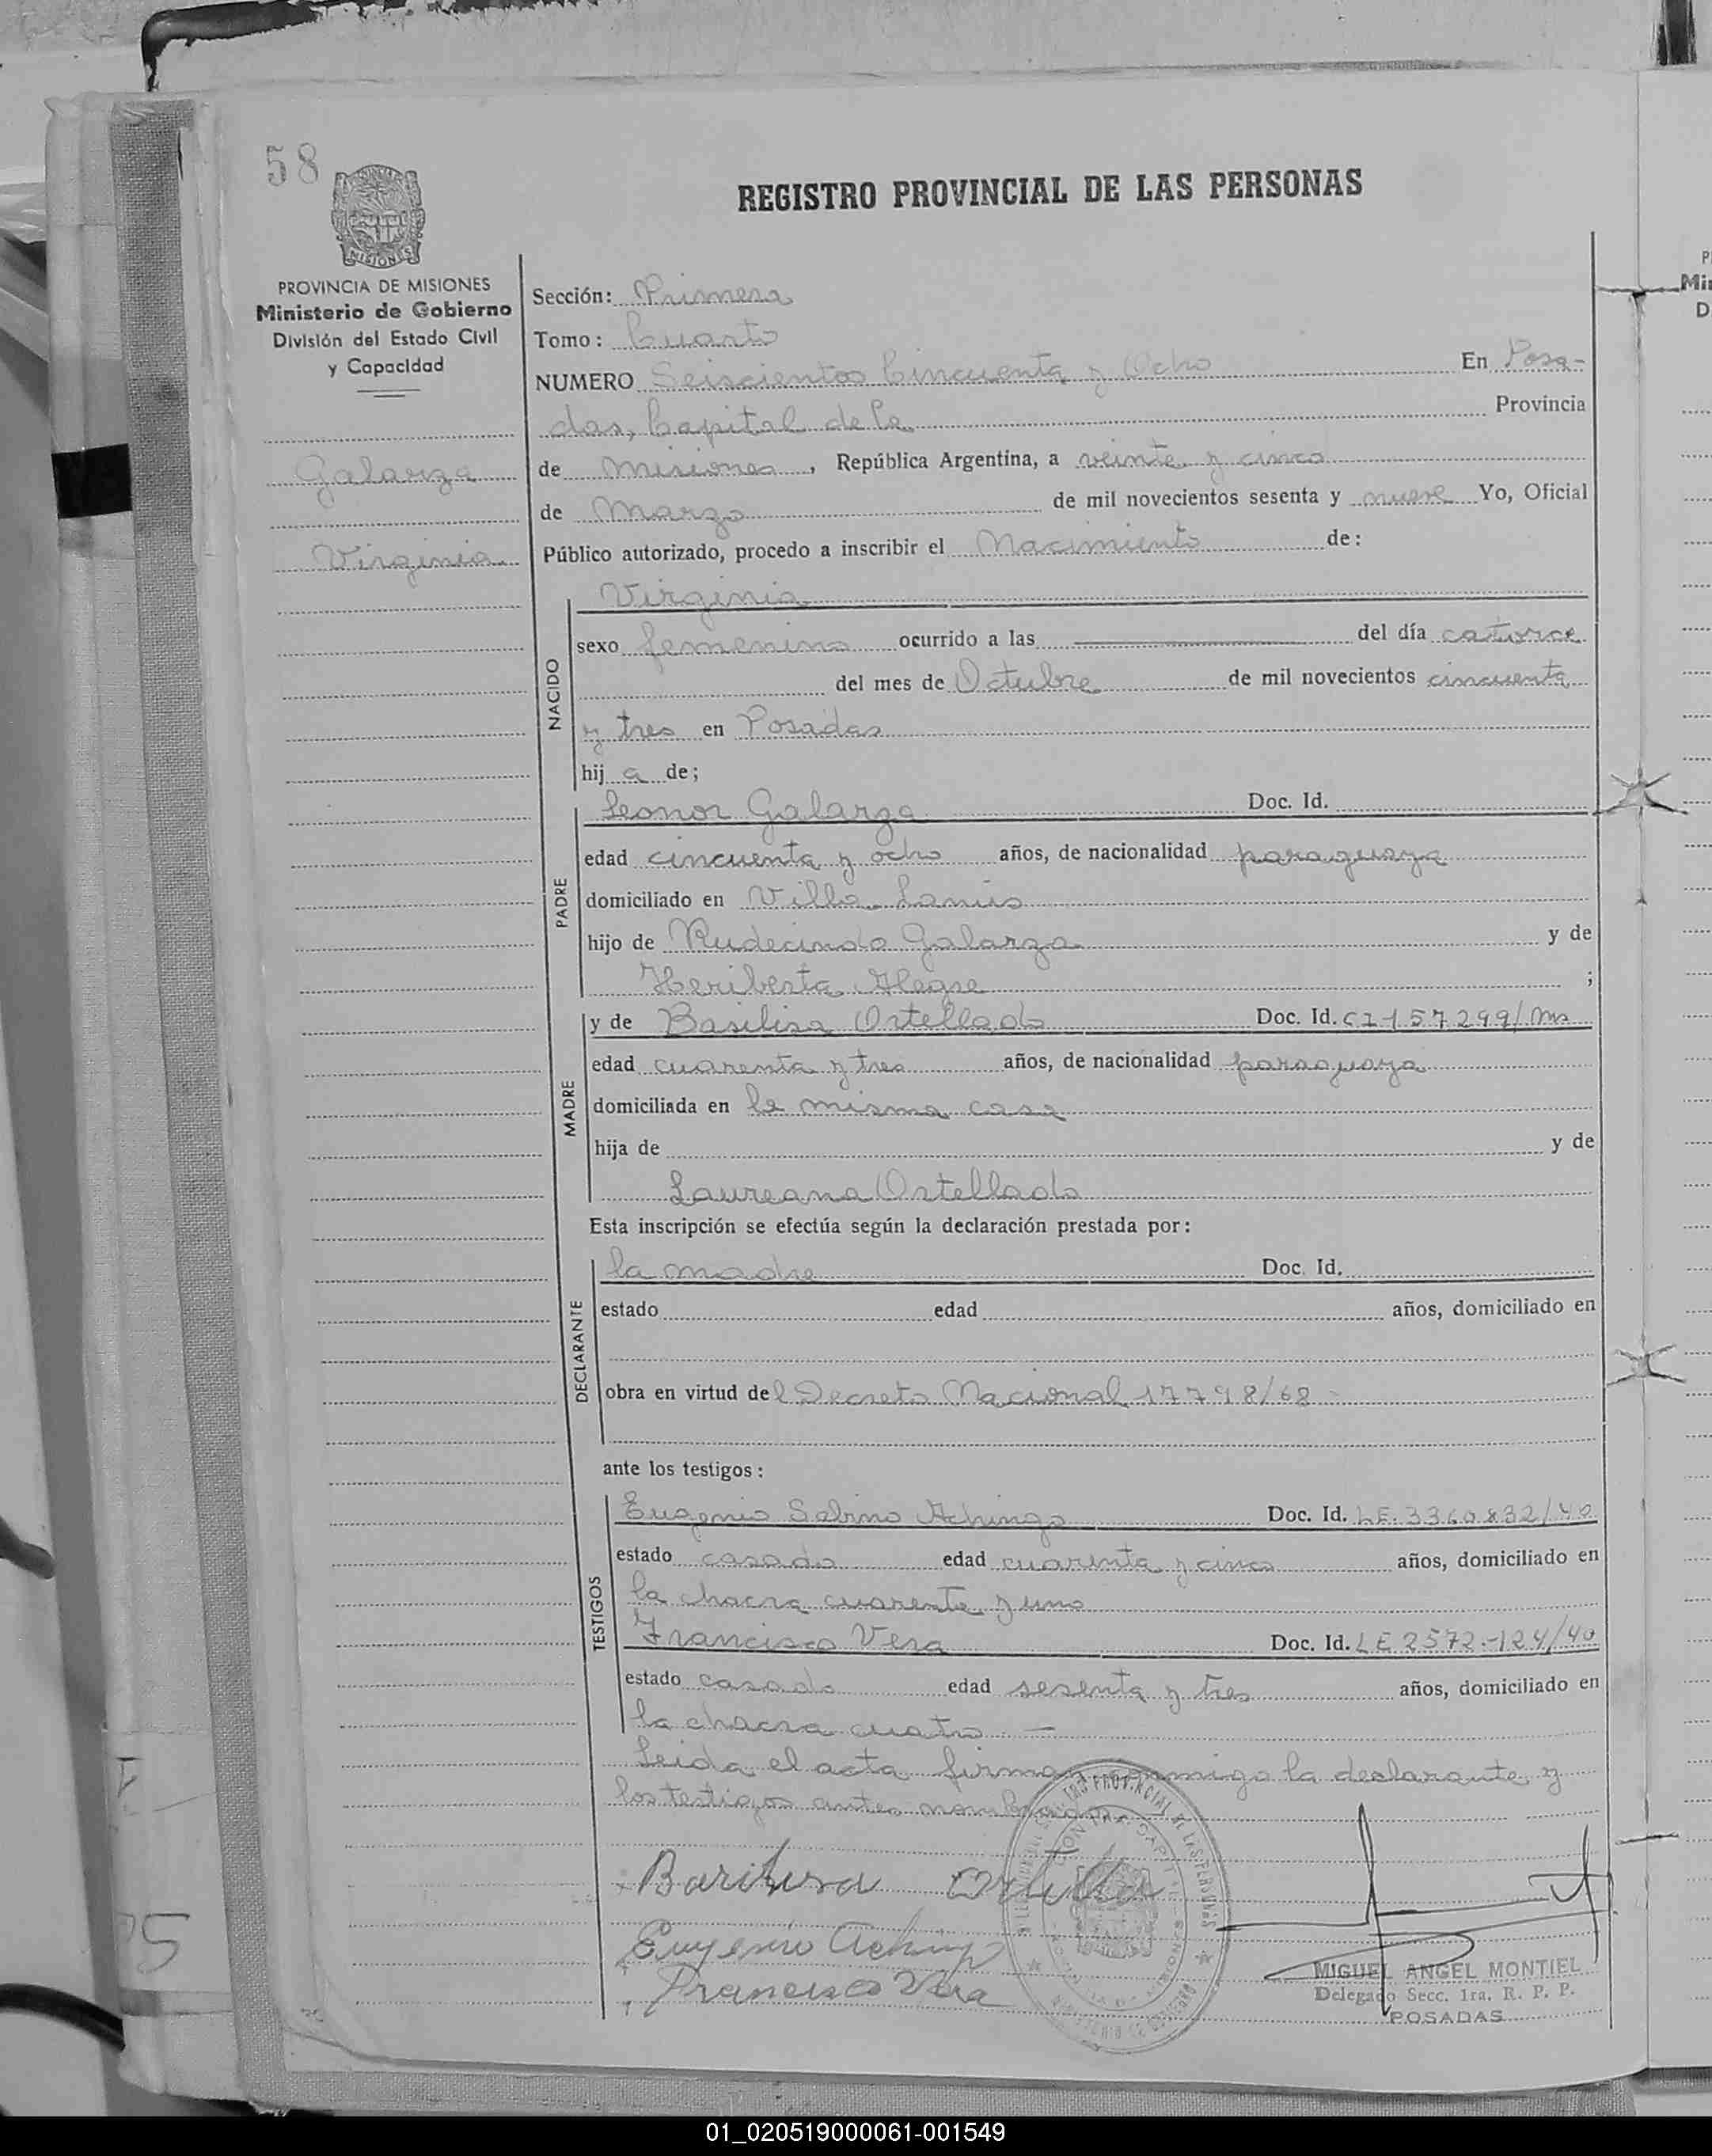 58
REGISTRO PROVINCIAL DE LAS PERSONAS
MISIONES
PROVINCIA DE MISIONES
Ministerio de Gobierno
División del Estado Civil
y Capacidad
Galarza
Virginia
Sección: Primera
Tomo: Cuarto
NUMERO Seiscientos Cincuenta y Ocho En Posa-
das, Capital de la Provincia
de Misiones, República Argentina, a veinte y cinco
de Marzo de mil novecientos sesenta y nueve Yo, Oficial
Público autorizado, procedo a inscribir el Nacimiento de:
NACIDO
Virginia
sexo femenino ocurrido a las del día catorce
del mes de Octubre de mil novecientos cincuenta
y tres en Posadas
hija de;
PADRE
Leonor Galarza Doc. Id.
edad cincuenta y ocho años, de nacionalidad paraguaya
domiciliado en Villa Lanús
hijo de Rudecindo Galarza y de
Heriberta Alegre ;
MADRE
y de Basilisa Ortellado Doc. Id. CI 157299/Mns
edad cuarenta y tres años, de nacionalidad paraguaya
domiciliada en la misma casa
hija de y de
Laureana Ortellado
Esta inscripción se efectúa según la declaración prestada por:
DECLARANTE
la madre Doc. Id.
estado edad años, domiciliado en
obra en virtud del Decreto Nacional 17798/68
ante los testigos:
TESTIGOS
Eugenio Sabino Achinga Doc. Id. LE. 3360832/40
estado casado edad cuarenta y cinco años, domiciliado en
la chacra cuarenta y uno
Francisco Vera Doc. Id. LE 2572-124/40
estado casado edad sesenta y tres años, domiciliado en
la chacra cuatro —
Leida el acta firman conmigo la declarante y
los testigos antes nombrados
Francisco Vera
MIGUEL ANGEL MONTIEL
Delegado Secc. 1ra. R. P. P.
POSADAS
01_020519000061-001549